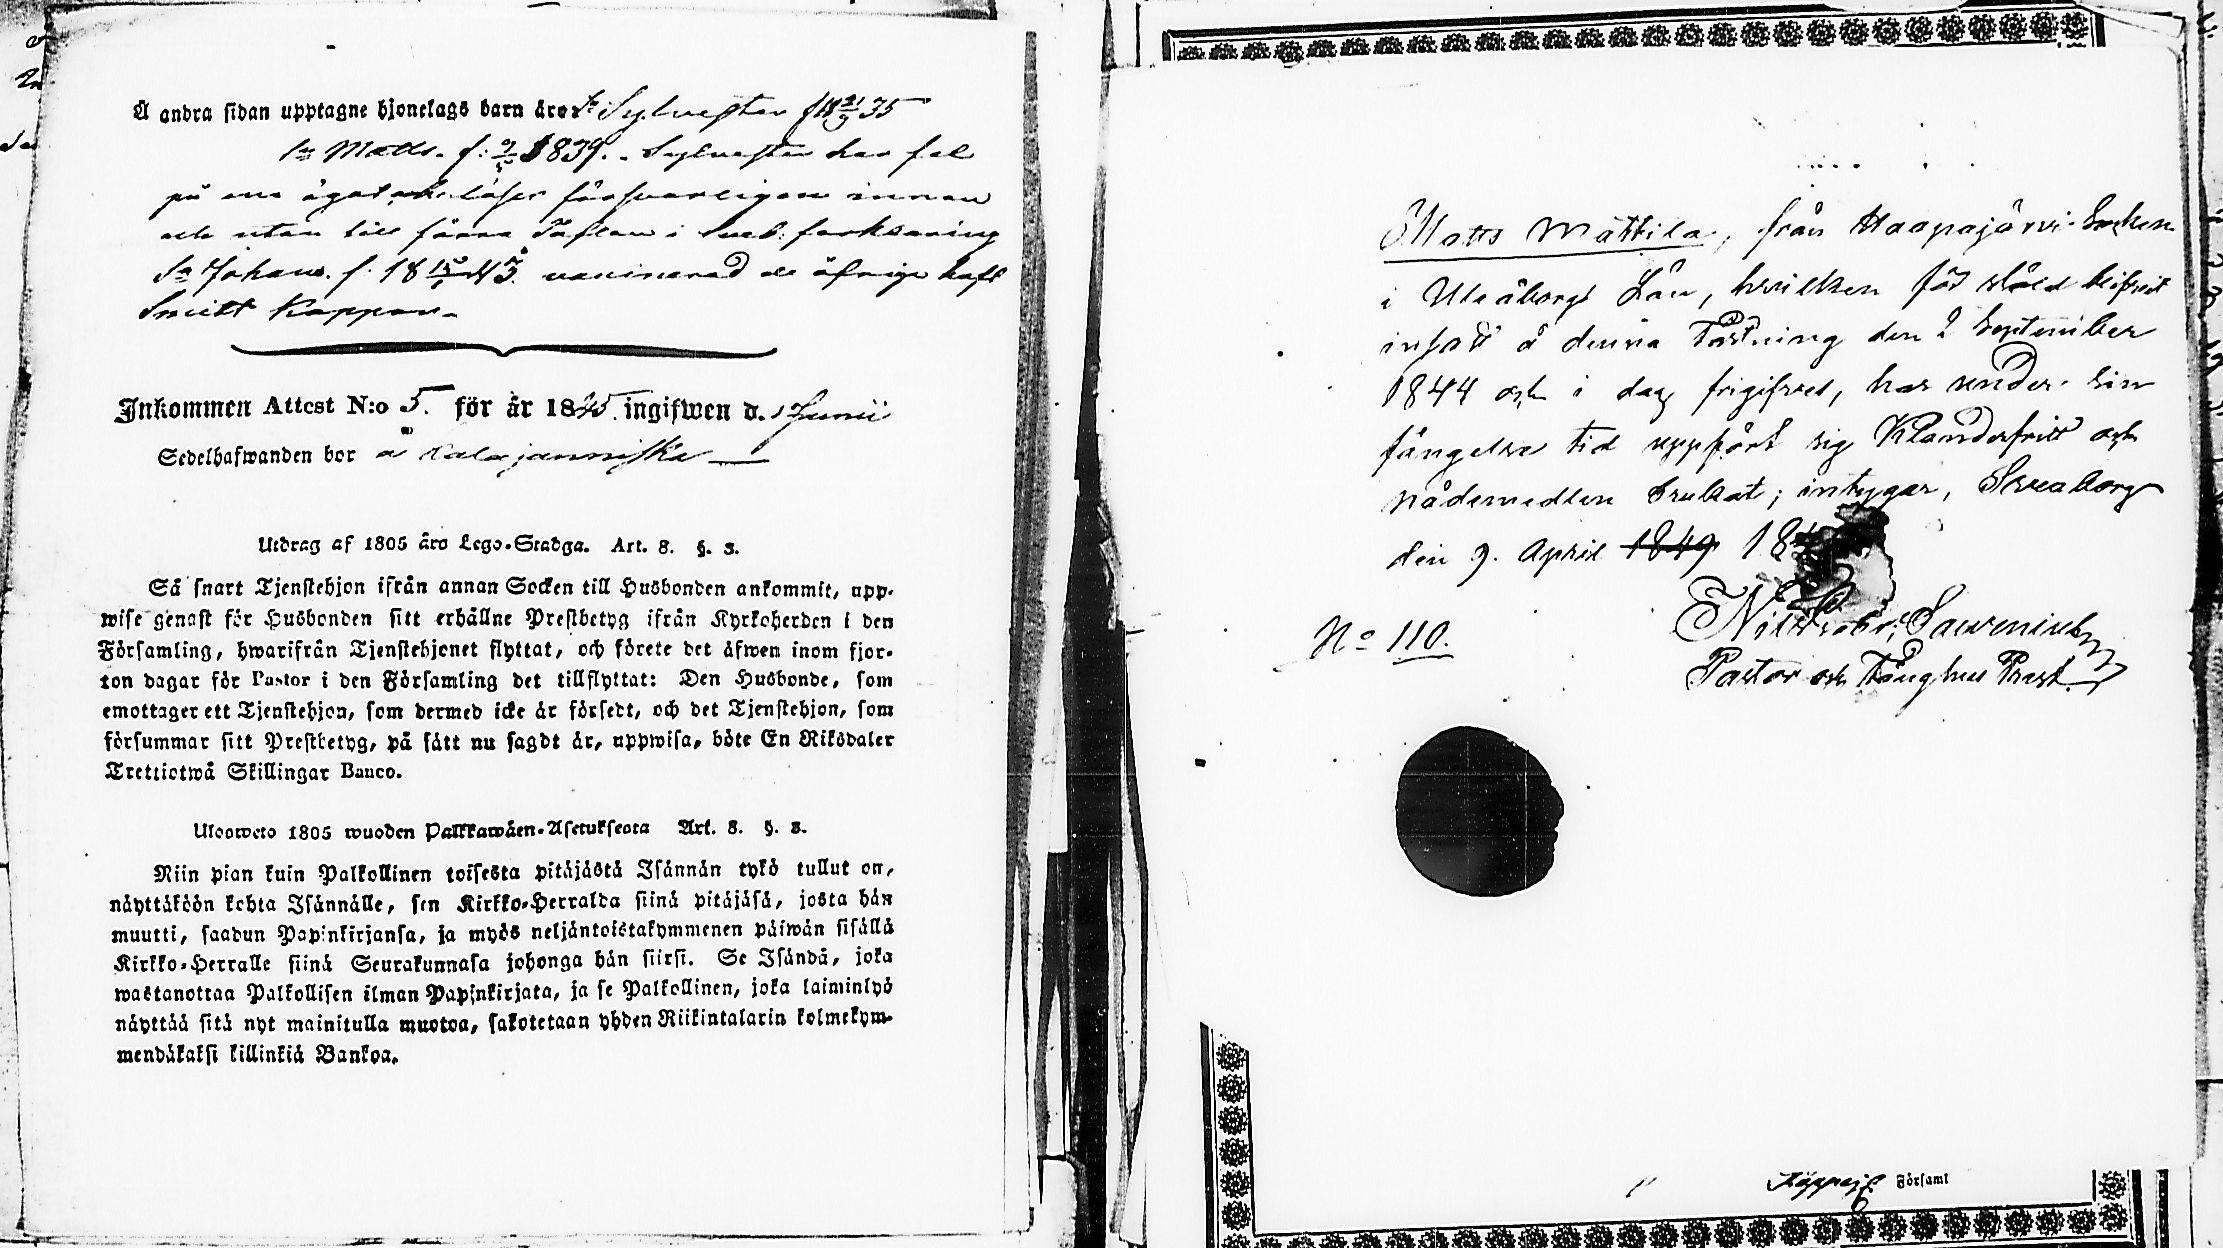 Å andra sidan upptagne hjonelags barn äro: Sn Sylvester f 18 21/9 35
Sn Matts. f: 9/5 1839. Sylvester har fel
på ena ögat läser försvarligen innan
och utan till förra Taflan i Sveb. förklaring
Sn Johan. f. 18 15/1 43. vaccinerad de öfrige haft
Smitt Koppor.
Inkommen Attest N:o 5. för år 1845. ingifwen d. 1 Junii
Sedelhafwanden bor å Kalajanniska
Utdrag af 1805 års Lego-Stadga. Art. 8. §. 3.
Så snart Tjenstehjon ifrån annan Socken till Husbonden ankommit, upp-
wise genast för Husbonden sitt erhållne Prestbetyg ifrån Kyrkoherden i den
Församling, hwarifrån Tjenstehjonet flyttat, och förete det äfwen inom fjor-
ton dagar för Pastor i den Församling det tillflyttat: Den Husbonde, som
emottager ett Tjenstehjon, som dermed icke är försedt, och det Tjenstehjon, som
försummar sitt Prestbetyg, på sätt nu sagdt är, uppwisa, böte En Riksdaler
Trettiotwå Skillingar Banco.
Ulosweto 1805 wuoden Palkkawäen-Asetuksesta Art. 8. §. 3.
Niin pian kuin Palkollinen toisesta pitäjästä Isännän tykö tullut on,
näyttäköön kohta Isännälle, sen Kirkko-Herralda siinä pitäjäsä, josta hän
muutti, saadun Papinkirjansa, ja myös neljäntoistakymmenen päiwän sisällä
Kirkko-Herralle siinä Seurakunnasa johonga hän siirsi. Se Isändä, joka
wastanottaa Palkollisen ilman Papinkirjata, ja se Palkollinen, joka laiminlyö
näyttää sitä nyt mainitulla muotoa, sakotetaan yhden Riikintalarin kolmekym-
mendäkaksi killinkiä Bankoa.
Matts Mattila, från Haapajärvi Socken
i Uleåborgs Län, hvilken för stöld blifvit
insatt å denna Fästning den 2 September
1844 och i dag frigifved, har under sin
fängelse tid uppfört sig Klanderfritt och
nådemedlen brukat; intygar, Sveaborg
den 9. April 1849 18
Pastor och Fånghus Præst.
No 110.
Församl